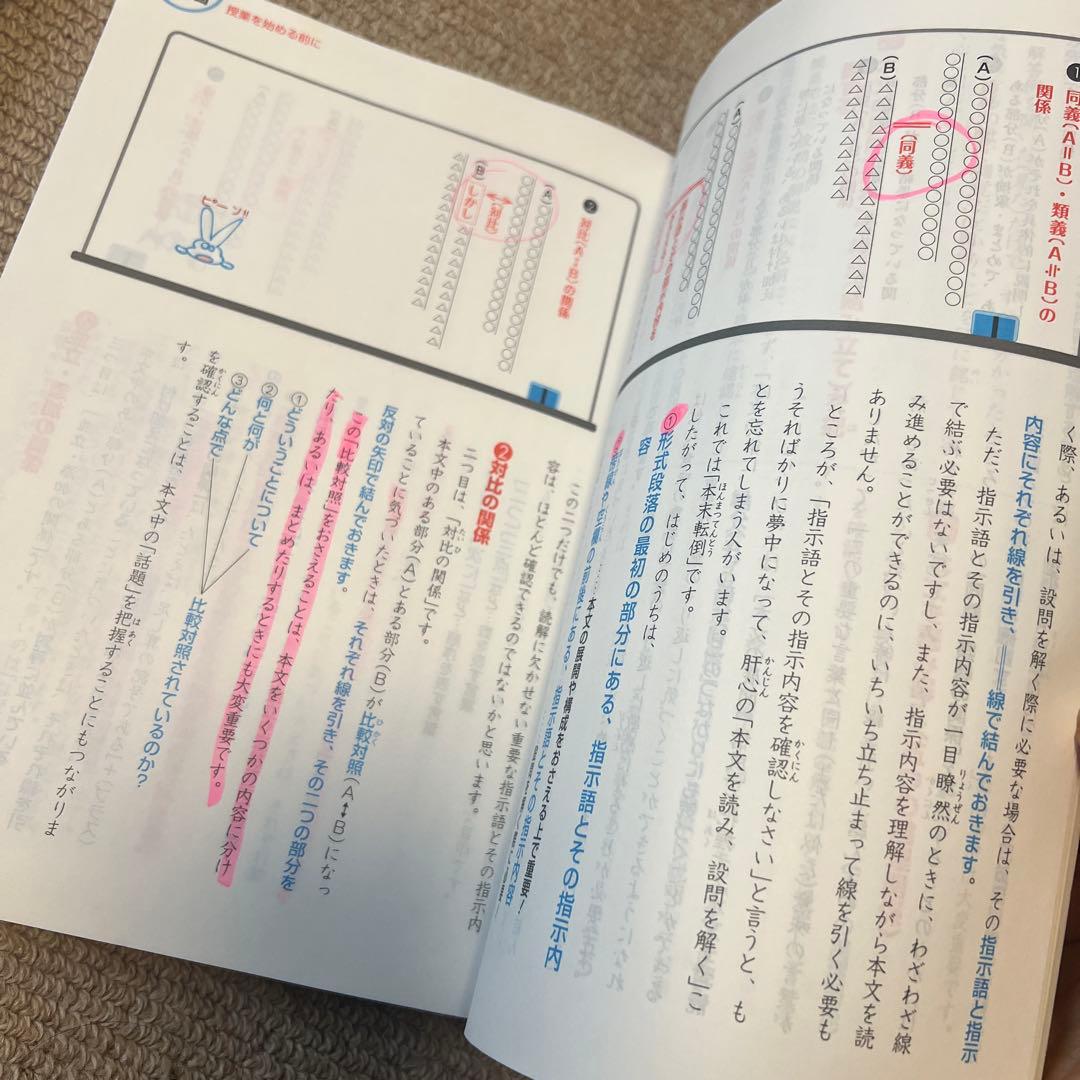 ❶同義(A＝B)・類義(A≒B)の
関係
(A)○○○○○○○○○○○○○
○○○○○○○○○○○
(同義)
(B)△△△△△△△△△△△△
△△△△△△△
く際、あるいは、設問を解く際に必要な場合は、その指示語と指示
内容にそれぞれ線を引き、══線で結んでおきます。
ただ、指示語とその指示内容が一目瞭然のときに、わざわざ線
りょうぜん
で結ぶ必要はないですし、また、指示内容を理解しながら本文を読
み進めることができるのに、いちいち立ち止まって線を引く必要も
ありません。
ところが、「指示語とその指示内容を確認しなさい」と言うと、も
かくにん
うそればかりに夢中になって、肝心の「本文を読み、設問を解く」こ
かんじん
とを忘れてしまう人がいます。
これでは「本末転倒」です。
ほんまつてんとう
したがって、はじめのうちは、
①形式段落の最初の部分にある、指示語とその指示内
容
本文の展開や構成をおさえる上で重要!
の前後にある、指示語とその指示内容
この二つだけでも、読解に欠かせない重要な指示語とその指示内
容は、ほとんど確認できるのではないかと思います。
授業を始める前に
❷対比(A↔B)の関係
(A)○○○○○○○○○○○○
○○○○○○○○○○○○
(対比)
(B)しかし、△△△△△△△△
△△△△△△△△△△△△
ピーン!!
❷対比の関係
二つ目は、「対比の関係」です。
たいひ
本文中のある部分(A)とある部分(B)が比較対照(A↔B)になっ
ひかく
ていることに気づいたときは、それぞれ線を引き、その二つの部分を
反対の矢印で結んでおきます。
この「比較対照」をおさえることは、本文をいくつかの内容に分け
たり、あるいは、まとめたりするときにも大変重要です。
①どういうことについて
②何と何が
③どんな点で
比較対照されているのか?
を確認することは、本文中の「話題」を把握することにもつながりま
かくにん
はあく
す。